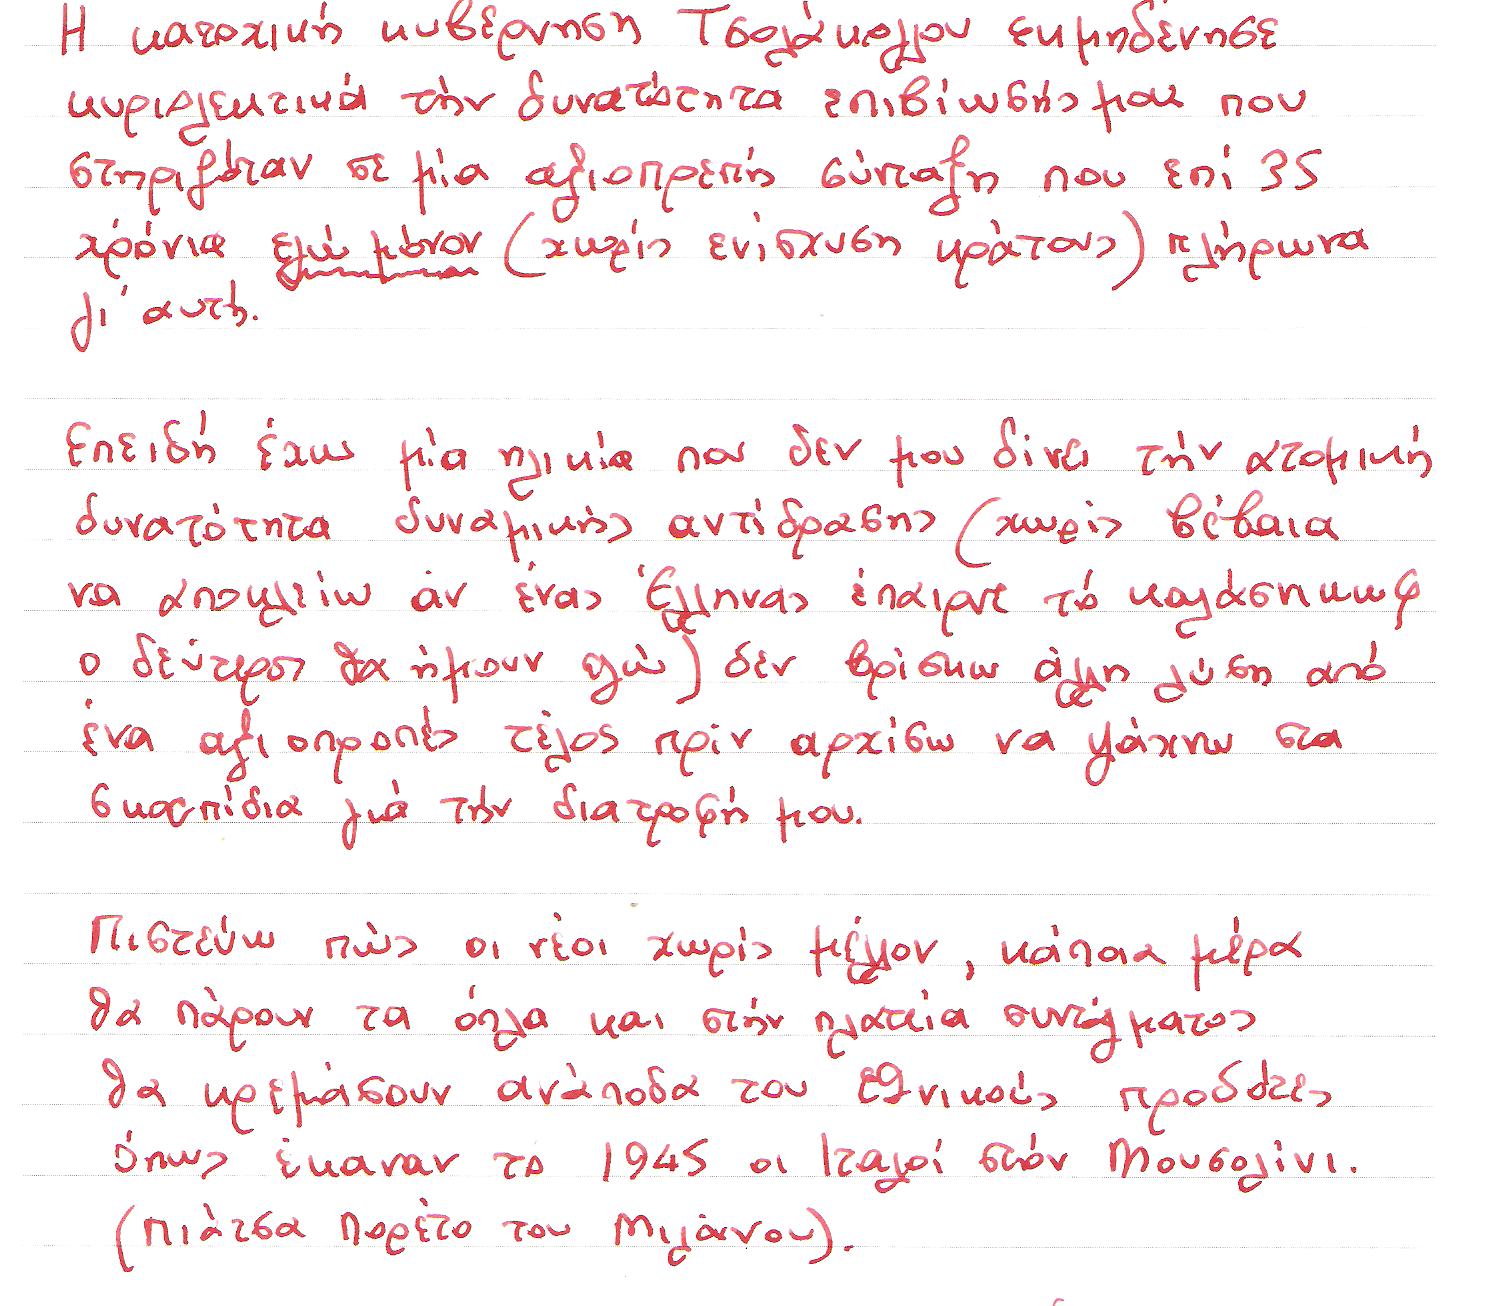 Η κατοχική κυβέρνηση Τσολάκογλου εκμηδένησε
κυριολεκτικά την δυνατότητα επιβίωσής μου που
στηριζόταν σε μία αξιοπρεπή σύνταξη που επί 35
χρόνια εγώ μόνον (χωρίς ενίσχυση κράτους) πλήρωνα
γι' αυτή.
Επειδή έχω μία ηλικία που δεν μου δίνει την ατομική
δυνατότητα δυναμικής αντίδρασης (χωρίς βέβαια
να αποκλείω αν ένας Έλληνας έπαιρνε το καλάσνηκωφ
ο δεύτερος θα ήμουν εγώ) δεν βρίσκω άλλη λύση από
ένα αξιοπρεπές τέλος πριν αρχίσω να ψάχνω στα
σκουπίδια για την διατροφή μου.
Πιστεύω πως οι νέοι χωρίς μέλλον, κάποια μέρα
θα πάρουν τα όπλα και στην πλατεία συντάγματος
θα κρεμάσουν ανάποδα του εθνικούς προδότες
όπως έκαναν το 1945 οι Ιταλοί στον Μουσολίνι.
(Πιάτσα Πορέτο του Μιλάνου).